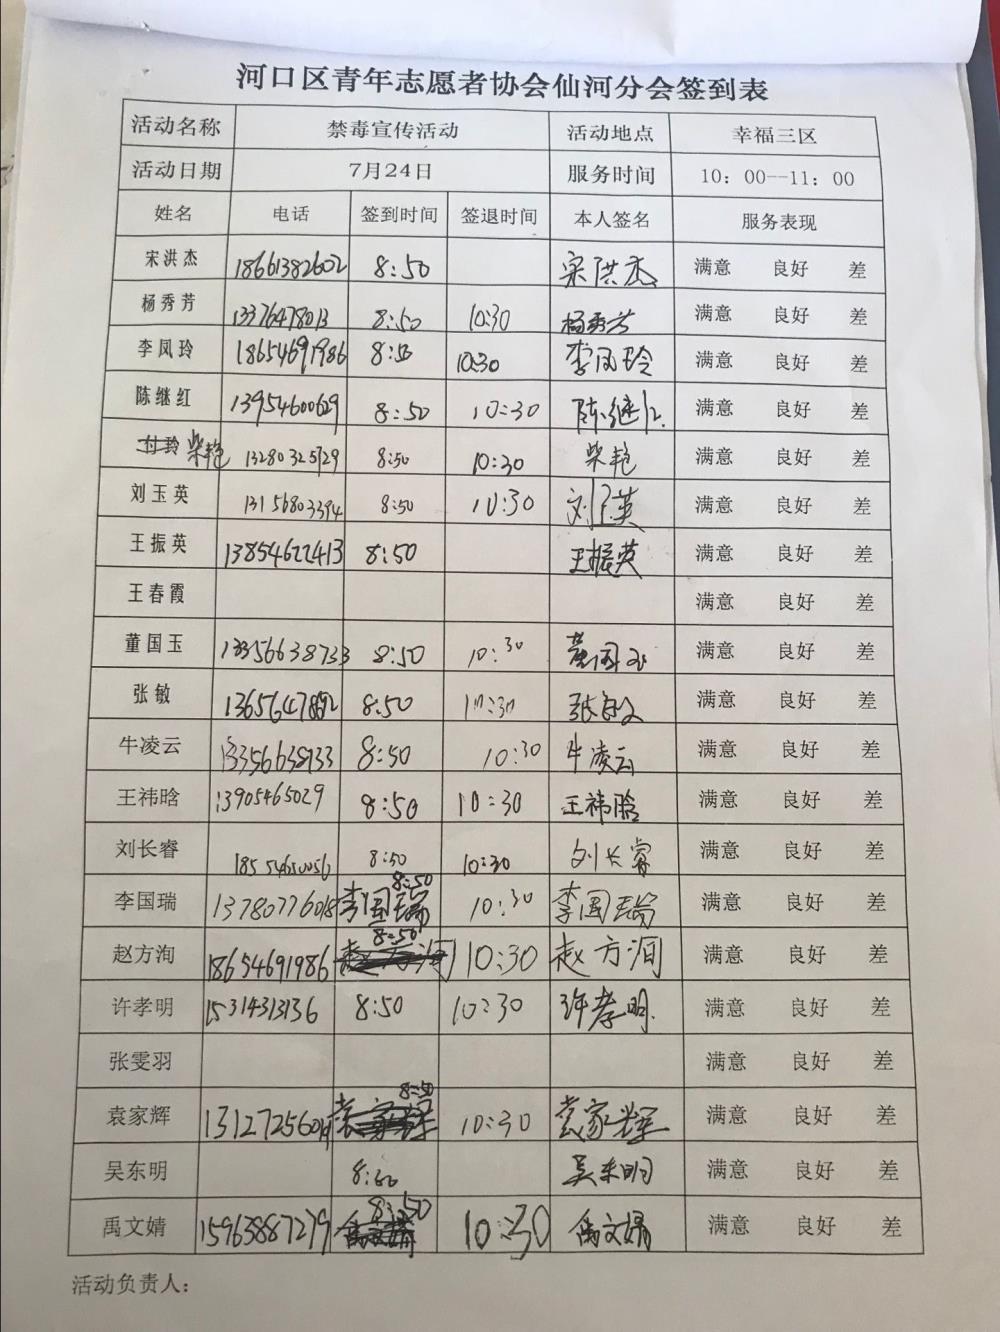 河口区青年志愿者协会仙河分会签到表
活动名称 禁毒宣传活动 活动地点 幸福三区
活动日期 7月24日 服务时间 10：00--11：00
姓名 电话 签到时间 签退时间 本人签名 服务表现
宋洪杰 18661382602 8:50 宋洪杰 满意 良好 差
杨秀芳 13376478013 8:50 10:30 杨秀芳 满意 良好 差
李凤玲 18654691986 8:50 10:30 李凤玲 满意 良好 差
陈继红 13954600629 8:50 10:30 陈继红 满意 良好 差
付玲 柴艳 13280325729 8:50 10:30 柴艳 满意 良好 差
刘玉英 13156803394 8:50 10:30 刘玉英 满意 良好 差
王振英 13854622413 8:50 王振英 满意 良好 差
王春霞 满意 良好 差
董国玉 13356638733 8:50 10:30 董国玉 满意 良好 差
张敏 8:50 10:30 张敏 满意 良好 差
牛凌云 8:50 10:30 牛凌云 满意 良好 差
王祎晗 13905465029 8:50 10:30 王祎晗 满意 良好 差
刘长睿 18554650056 8:50 10:30 刘长睿 满意 良好 差
李国瑞 13780776018 李国瑞 8:50 10:30 李国瑞 满意 良好 差
赵方洵 18654691986 赵方洵 8:50 10:30 赵方洵 满意 良好 差
许孝明 15314313136 8:50 10:30 许孝明 满意 良好 差
张雯羽 满意 良好 差
袁家辉 袁家辉 8:50 10:30 袁家辉 满意 良好 差
吴东明 吴东明 满意 良好 差
禹文婧 15963887279 8:50 10:30 禹文婧 满意 良好 差
活动负责人：